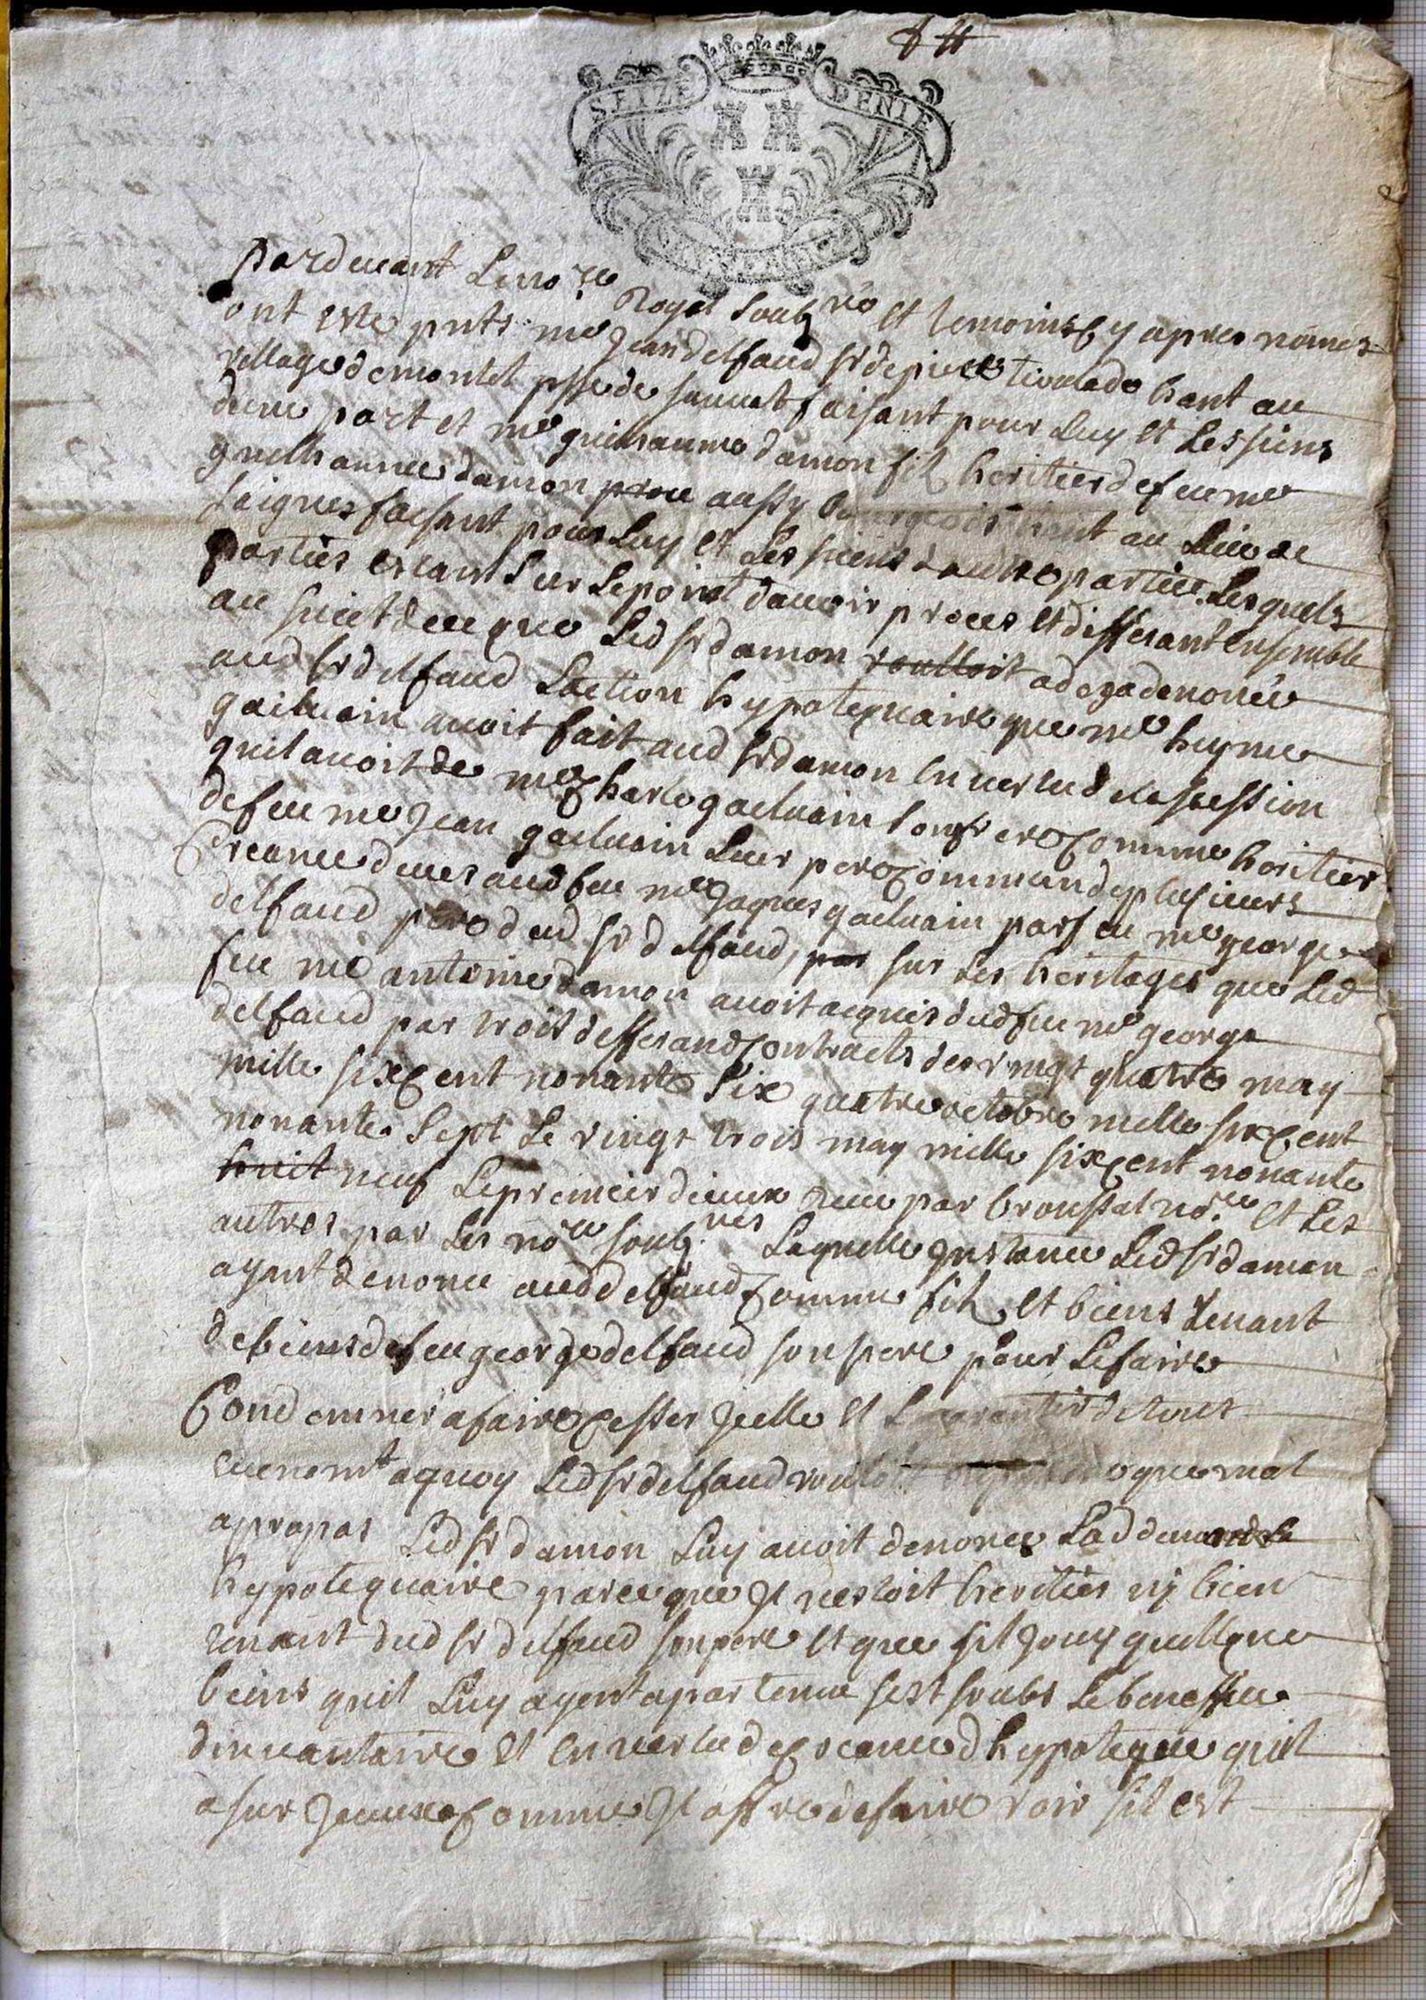 8 tt
SEIZE DENIE
Pardevant Le no.re Royal soubz.né et temoins cy apres nomes
ont esté pnts me Jean delfaud sr de pierre tivoulado hant au
village de montel psse de sauvat faisant pour Luy et Les siens
dune part et me guilhaume damon fils heritier de feu me
guilhaume damon aussy Bourgeois hant au Lieu de
saignes faisant pour Luy et Les siens dautre partie. Lesquels
parties estant sur Le point davoir proces et differant ensemble
au suiet de ce que Led sr damon voulloit a deza denoncé
aud sr delfaud Laction hypotequaire que me hugue
gailvain avoit fait aud sr damon en vertu de La session
quil avoit de me charle gailvain son frere comme heritier
de feu me Jean gailvain Leur pere comm
creance deues aud feu me Jaques gailvain par feu me george
delfaud pere dud sr delfaud, par sur Les heritages que Led
feu me antoine damon avoit acquis dud feu me george
delfaud par trois differand contracts des vingt quatre may
mille six cent nonante six quatre octobre mille six cent
nonante sept Le vingt trois may mille six cent nonante
huit neuf Le premier diceux receu par broussat no.re et Les
autres par Les no.re soubz.nés Laquelle instance Led sr damon
ayant denoncé aud delfaud comme fils et biens tenant
de biens de feu george delfaud son pere pour Le faire
Condemner a faire cesser Jcelle et L garantir de tous
evenemt a quoy Led sr delfaud vouloit que mal
apropos Led sr damon Luy avoit denoncé Lad demande
hypotequaire parce que Jl nestoit heritier ny bien
tenant dud sr delfaud son pere et que sil Jouy quelque
biens quil Luy ayent apartenu sest soubs Le beneffice
dinvantaire et en vertu de creance dhypoteque quil
a sur Jceux comme Jl offre de faire voir sil est